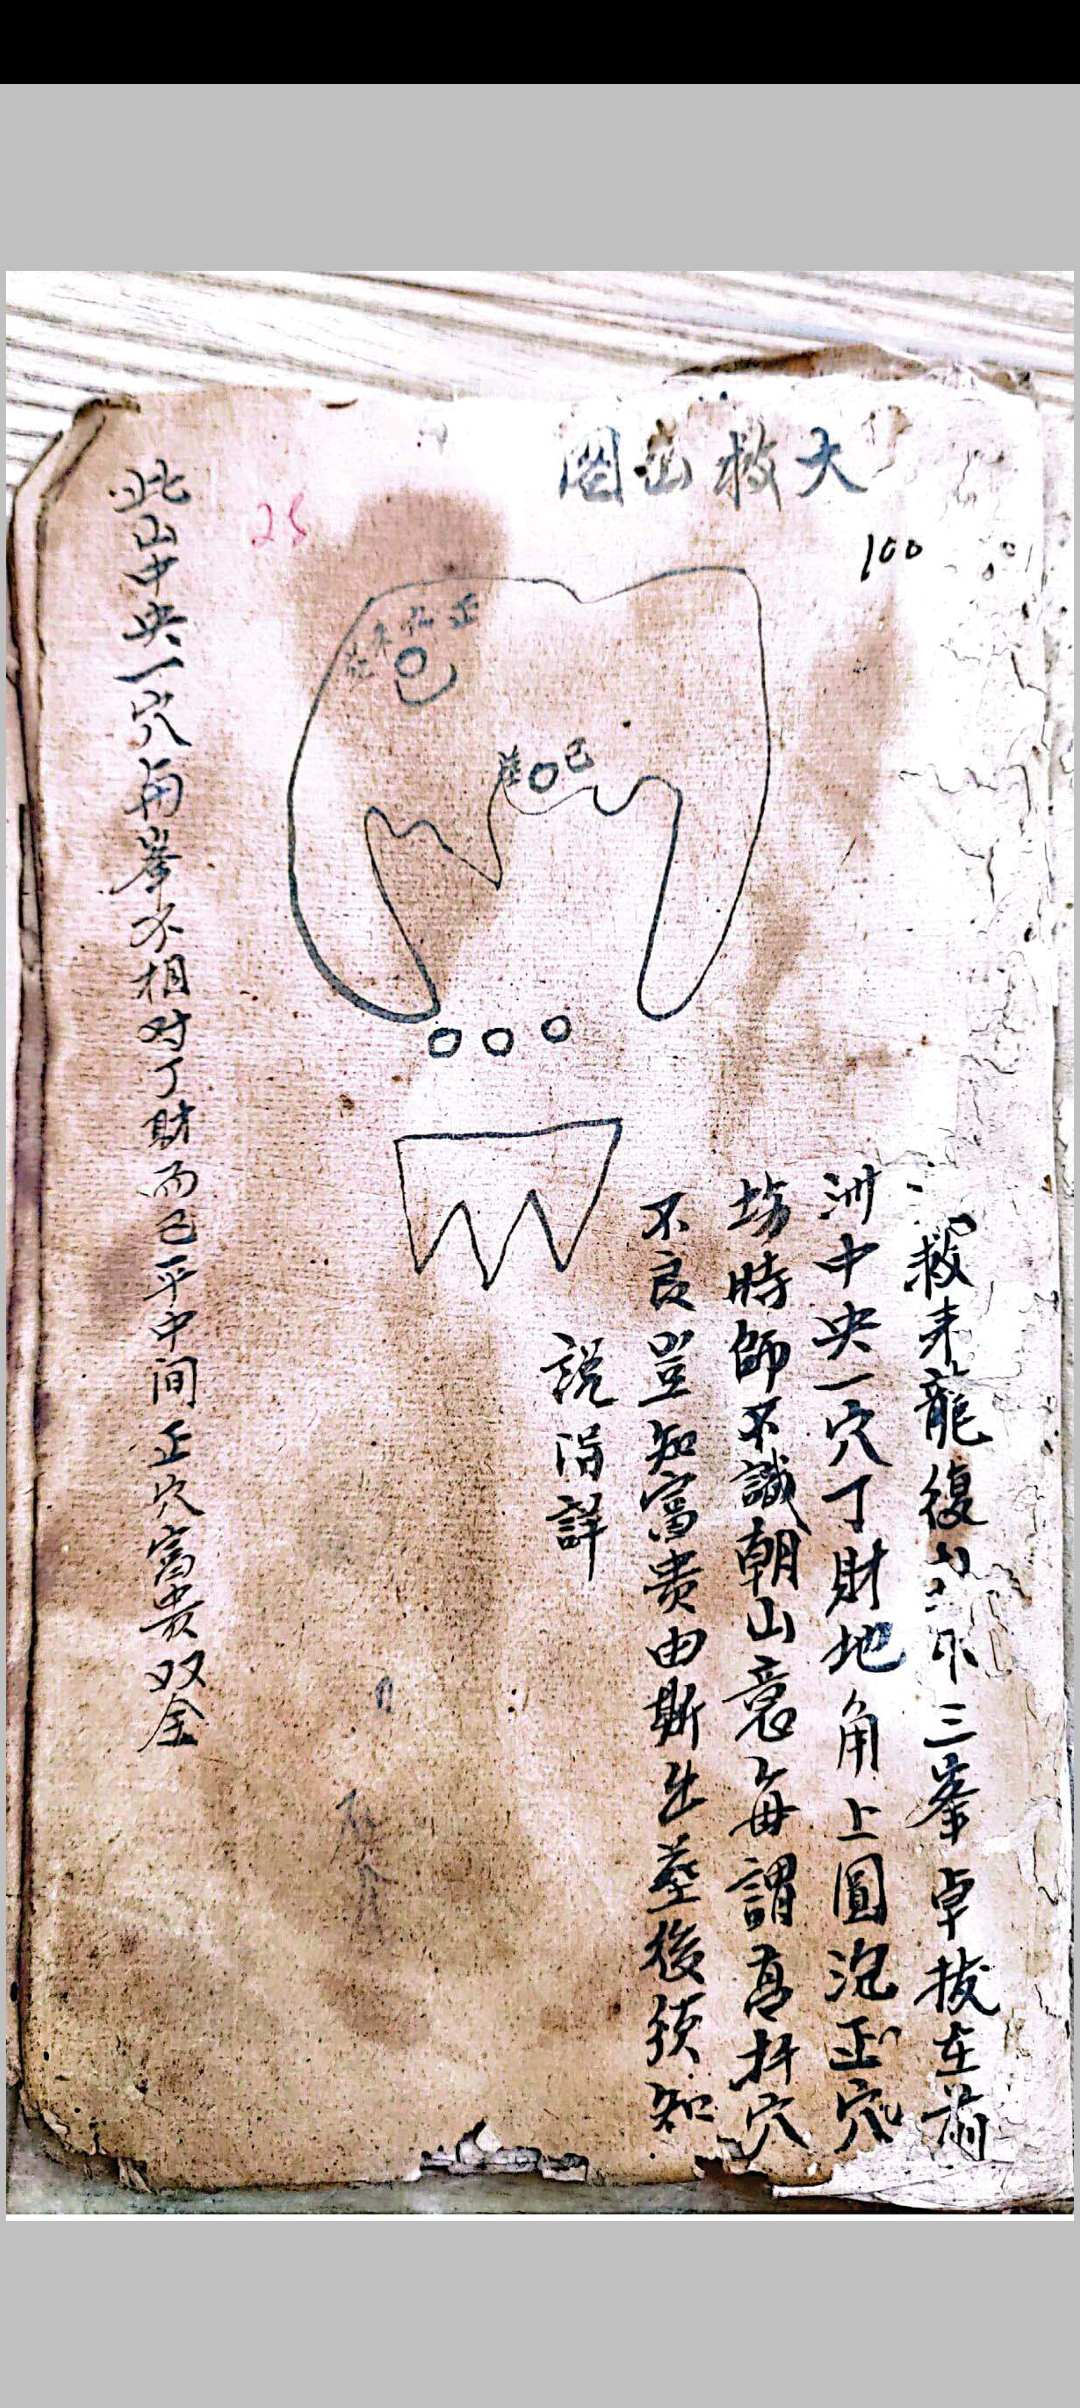 大救山圖
100
救来龍復山 三峯卓拔在前
洲中央一穴丁財地角上圓泡正穴
坊時師不識朝山意每謂高扦穴
不良豈知富贵由斯出塟後須知
說得詳
25
正
巳
此山中央一穴与峯不相对丁財而已平中间正穴富贵双全